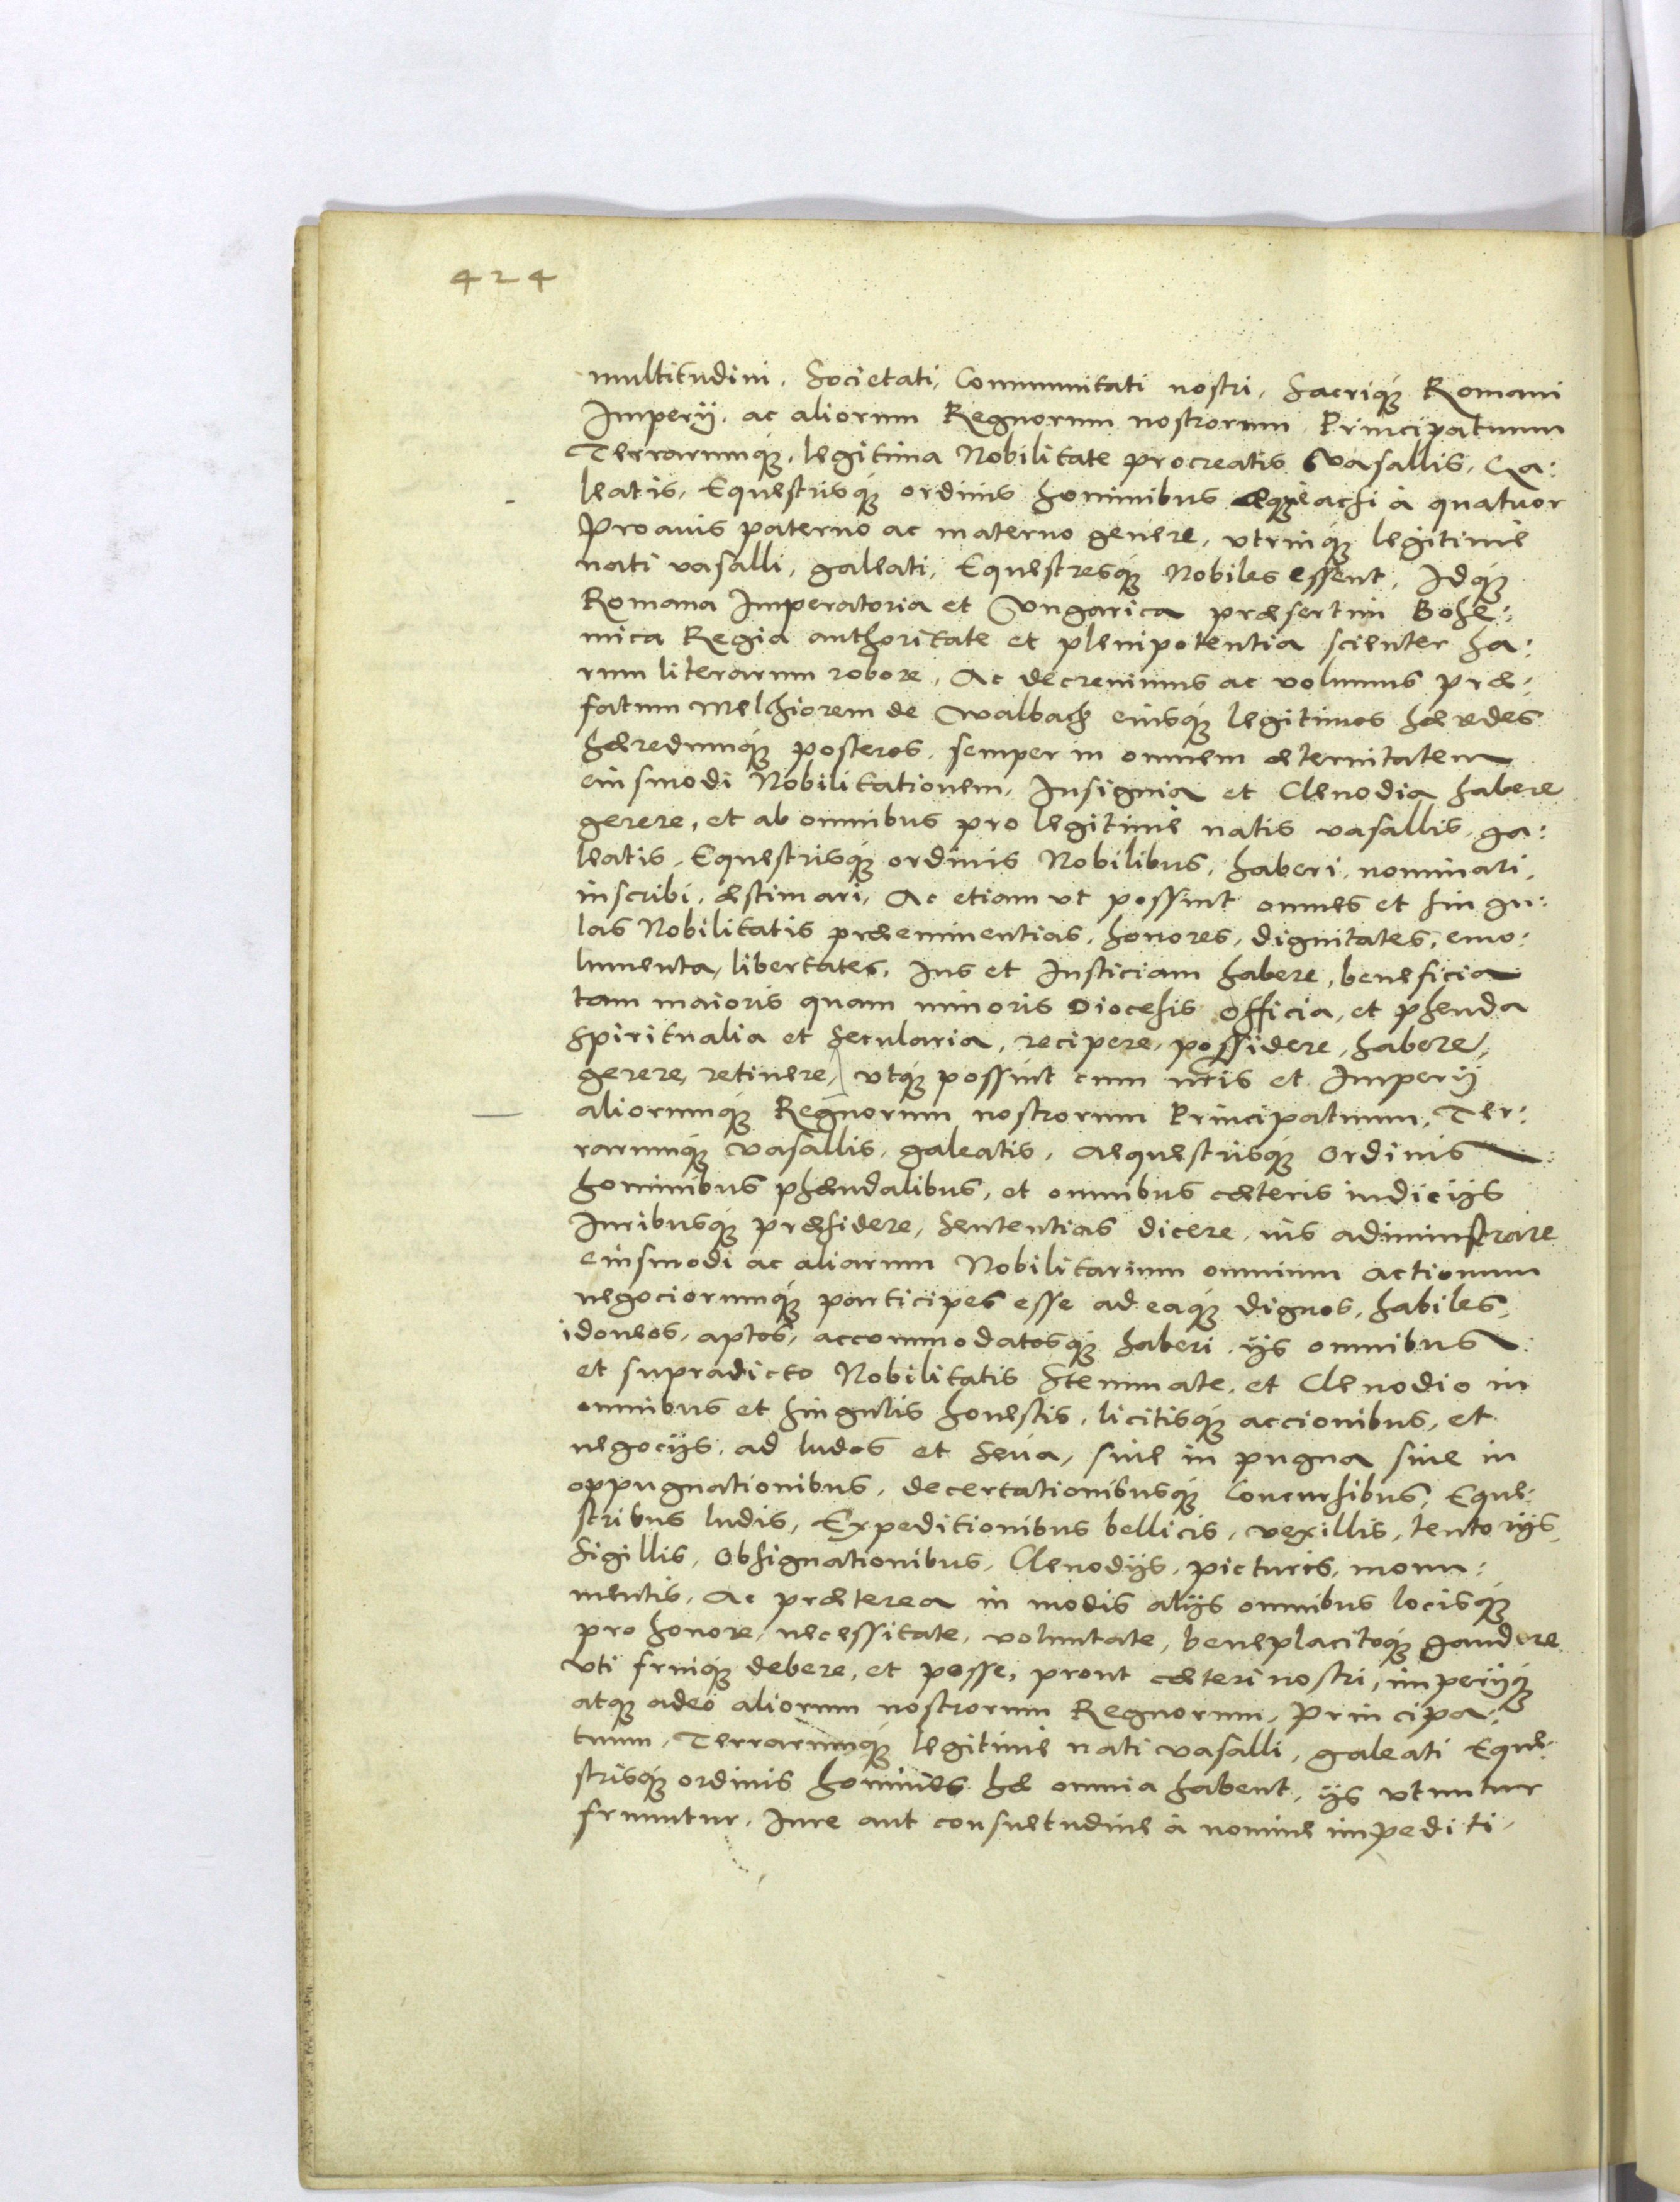 424
multitudini, Societati, Communitati nostri, Sacriq́ꝫ Romani
Imperij, ac aliorum Regnorum nostrorum Principatuum
Terrarumq́ꝫ, legitima Nobilitate procreatis Vasallis, Ga:
leatis, Equestrisq́ꝫ ordinis hominibus æquè acsi à quatuor
Proauis paterno ac materno genere, vtrinq́ꝫ legitimè
nati vasalli, galeati, Equestresq́ꝫ Nobiles essent, Idq́ꝫ
Romana Imperatoria et Vngarica præsertim Bohe:
mica Regia authoritate et plenipotentia scienter ha:
rum literarum robore, Ac decreuimus ac volumus præ:
fatum Melchiorem de Walbach eiusq́ꝫ legitimos hæredes
hæredumq́ꝫ posteros, semper in omnem æternitatem
eiusmodi Nobilitationem, Insignia et Clenodia habere
gerere, et ab omnibus pro legitimè natis vasallis, ga:
leatis, Equestrisq́ꝫ ordinis Nobilibus, haberi, nominari,
inscribi, æstimari, Ac etiam vt possint omnes et singu:
las Nobilitatis præeminentias, honores, dignitates, emo:
lumenta, libertates, Ius et Iusticiam habere, beneficia
tam maioris quam minoris Diocesis officia, et pheuda
Spiritualia et Secularia, recipere, possidere, habere,
gerere, retinere, vtq́ꝫ possint cum nr̃is et Imperij
aliorumq́ꝫ Regnorum nostrorum Principatuum, Ter:
rarumq́ꝫ vasallis, galeatis, Aequestrisq́ꝫ Ordinis
hominibus phæudalibus, et omnibus cæteris iudicijs
Iuribusq́ꝫ præsidere, Sententias dicere, ius adiministrare
eiusmodi ac aliarum Nobilitarium omnium actionum
negociorumq́ꝫ participes esse ad eaq́ꝫ dignos, habiles,
idoneos, aptos, accommodatosq́ꝫ haberi, ijs omnibus
et supradicto Nobilitatis Stemmate, et Clenodio in
omnibus et singulis honestis, licitisq́ꝫ accionibus, et
negocijs, ad ludos et Seua, siue in pugna siue in
oppugnationibus, decertationibusq́ꝫ Concursibus, Eque:
stribus ludis, Expeditionibus bellicis, vexillis, tentorijs,
Sigillis, Obsignationibus, Clenodijs, picturis, monu:
mentis, Ac præterea in modis alijs omnibus locisq́ꝫ
pro honore, necessitate, voluntate, beneplacitoq́ꝫ gaudere
vti fruiq́ꝫ debere, et posse, prout cæteri nostri, imperijq́ꝫ
atq́ꝫ adeò aliorum nostrorum Regnorum, Principa:
tuum, Terrarumq́ꝫ legitimè nati vasalli, galeati Eque:
strisq́ꝫ ordinis homines hæ omnia habent, ijs vtuntur
fruuntur, Iure aut consuetudine à nomine impediti,